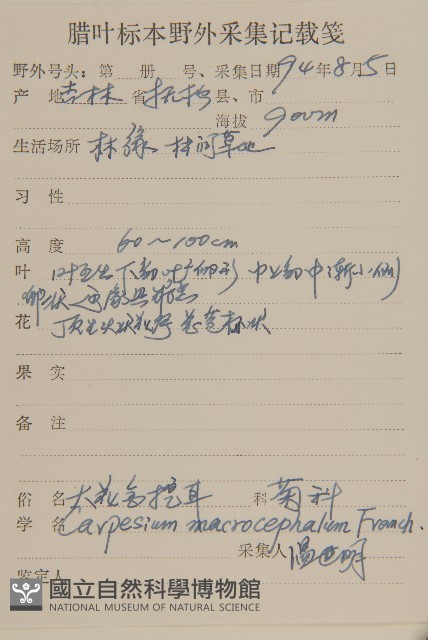 腊叶标本野外采集记载笺
野外号头：第 册 号、采集日期94年8月5日
产 地吉林省抚松县、市
海拔 900m
生活场所 林缘 林间草地
习 性
高 度 60～100cm
叶 叶互生 下部叶广卵形 中上部叶渐小
花 总苞杯状
果 实
备 注
俗 名 大花金挖耳 科 菊科
学 名 Carpesium macrocephalum Franch.
采集人 温世明
监定人
國立自然科學博物館
NATIONAL MUSEUM OF NATURAL SCIENCE